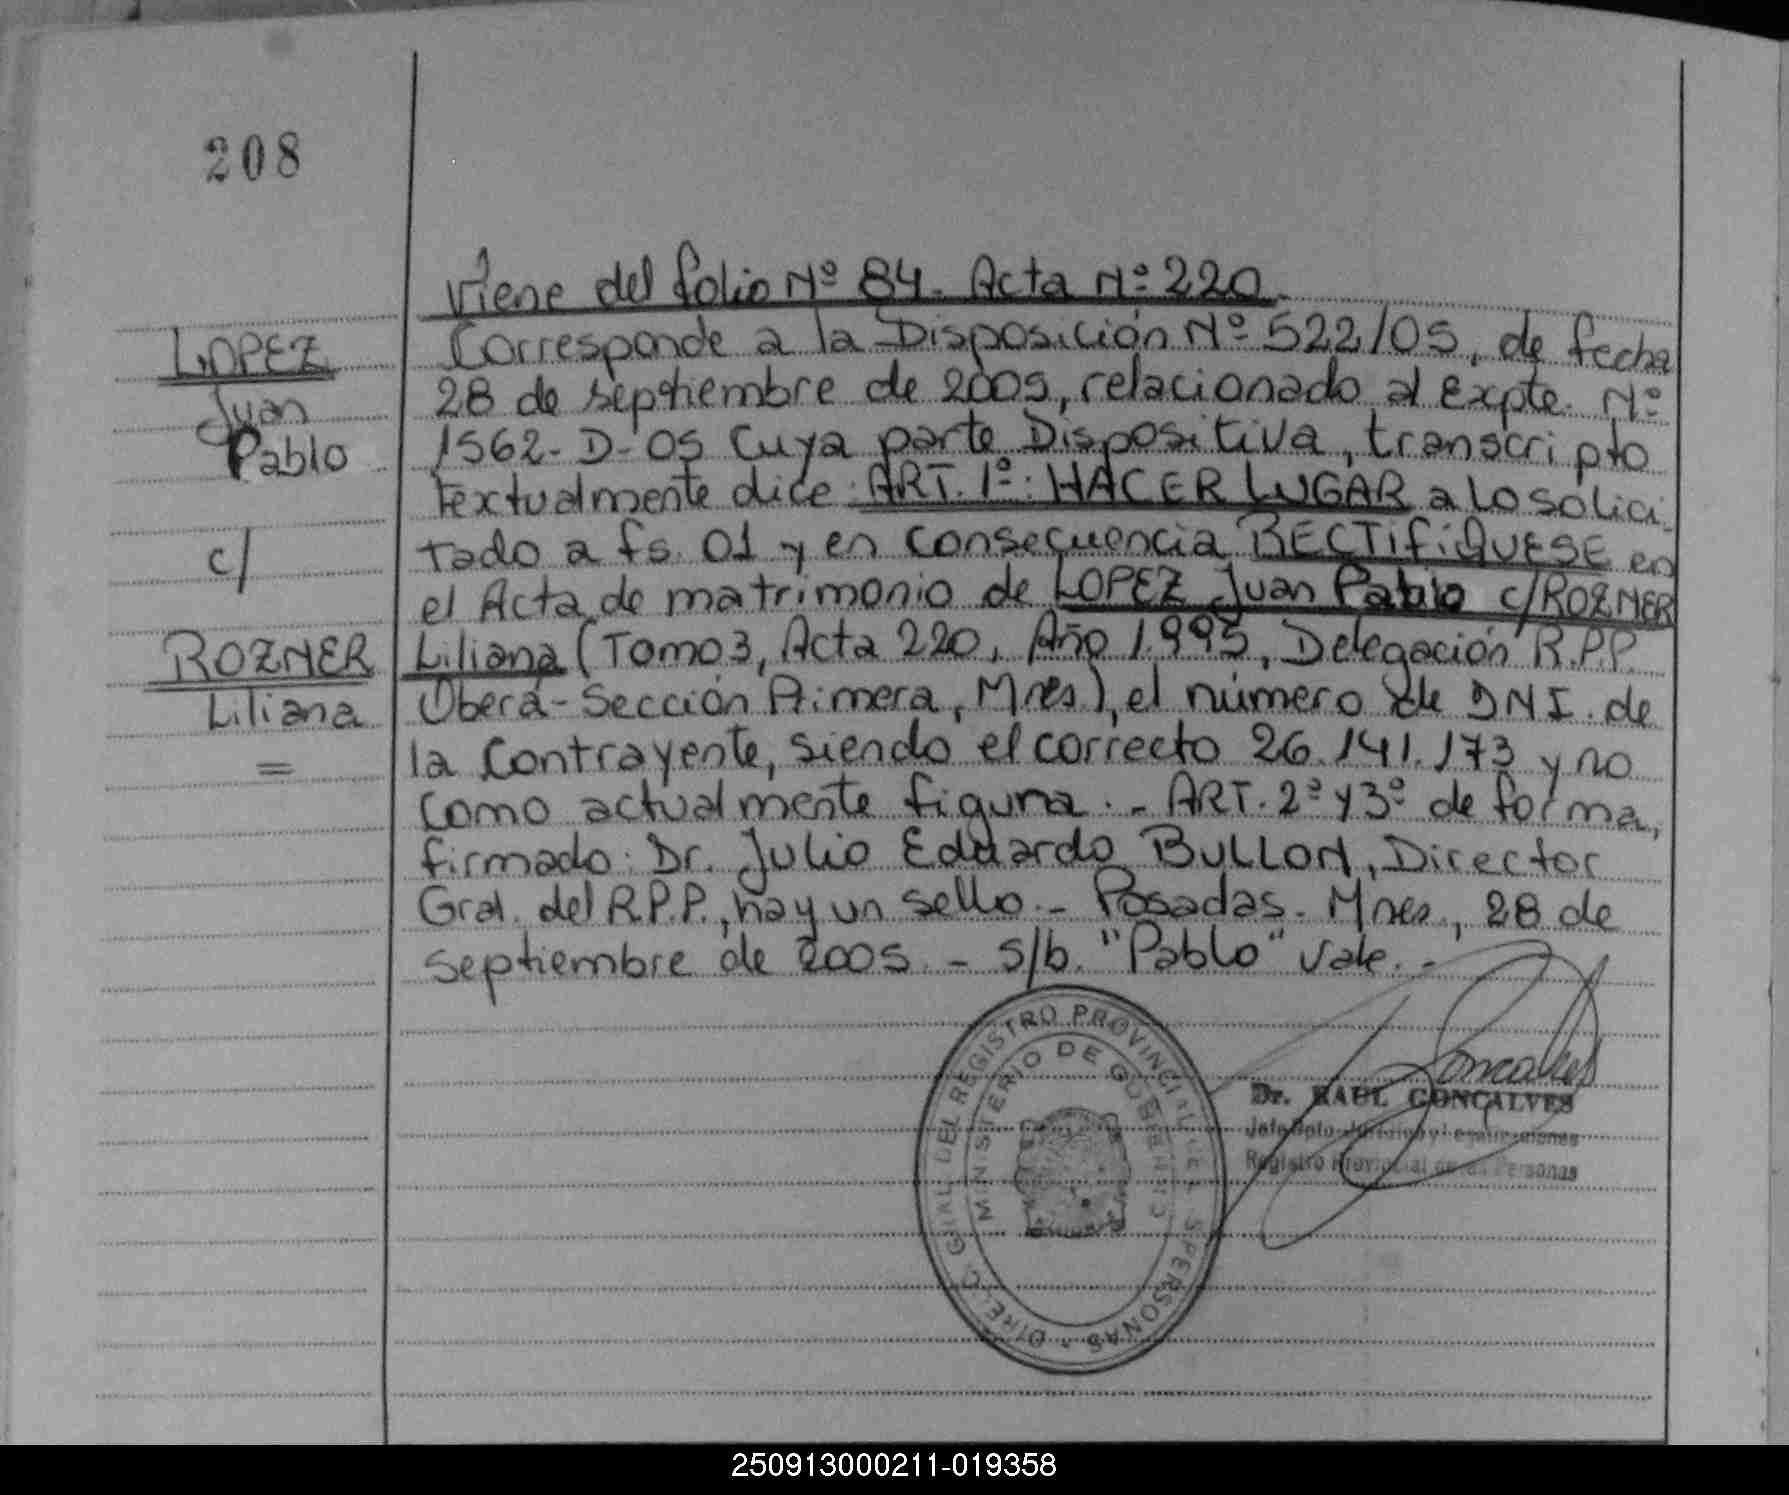 208
Viene del folio Nº 84. Acta Nº 220.
LOPEZ
Juan
Pablo
c/
ROZNER
Liliana
=
Corresponde a la Disposición Nº 522/05, de fecha
28 de septiembre de 2005, relacionado al Expte. Nº
1562-D-05 cuya parte Dispositiva, transcripto
textualmente dice: ART. 1º: HACER LUGAR a lo solici-
tado a fs. 01 y en consecuencia RECTIFIQUESE en
el Acta de matrimonio de LOPEZ Juan Pablo c/ROZNER
Liliana (Tomo 3, Acta 220, Año 1.995, Delegación R.P.P.
Oberá-Sección Primera, Mnes), el número de DNI. de
la contrayente, siendo el correcto 26.141.173 y no
como actualmente figura.- ART. 2º y 3º de forma,
firmado: Dr. Julio Eduardo BULLON, Director
Gral. del R.P.P., hay un sello.- Posadas. Mnes, 28 de
septiembre de 2005.- s/b. "Pablo" vale.-
DIREC. GRAL. DEL REGISTRO PROVINCIAL DE PERSONAS
MINISTERIO DE GOBIERNO
Dr. RAUL GONCALVES
Registro Provincial de las Personas
250913000211-019358